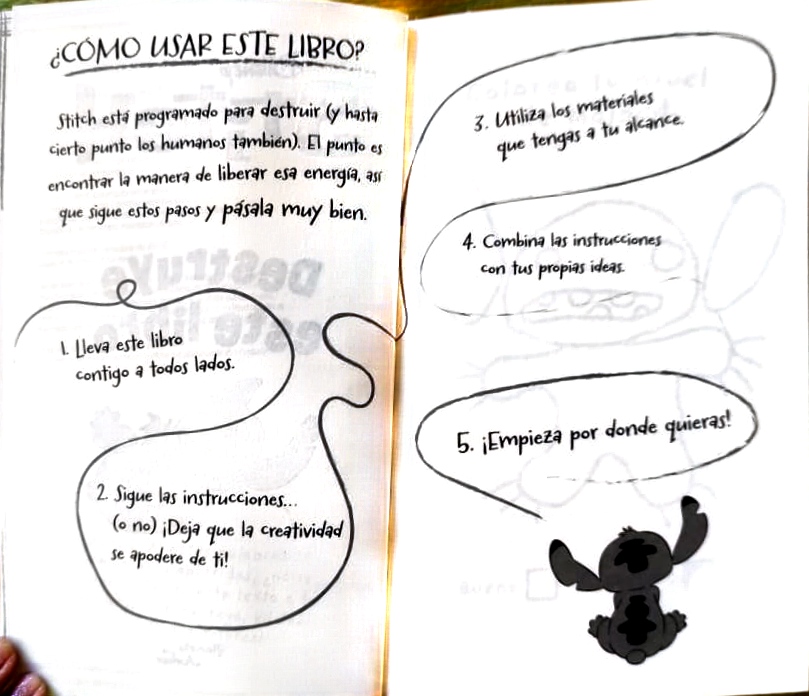 ¿CÓMO USAR ESTE LIBRO?
Stitch está programado para destruir (y hasta
cierto punto los humanos también). El punto es
encontrar la manera de liberar esa energía, así
que sigue estos pasos y pásala muy bien.
1. Lleva este libro
contigo a todos lados.
2. Sigue las instrucciones...
(o no) ¡Deja que la creatividad
se apodere de ti!
3. Utiliza los materiales
que tengas a tu alcance.
4. Combina las instrucciones
con tus propias ideas.
5. ¡Empieza por donde quieras!